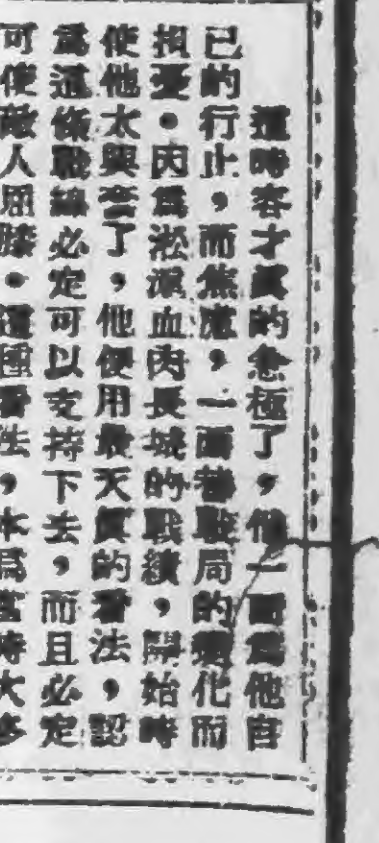 這時客才真的急極了，他一面為他自
已的行止，而焦慮，一面替戰局的變化而
担憂。因為淞滬血肉長城的戰績，開始時
使他太興奮了，他便用最天真的看法，認
為這條戰線必定可以支持下去，而且必定
可使敵人屈膝。這種看法，本為當時大多